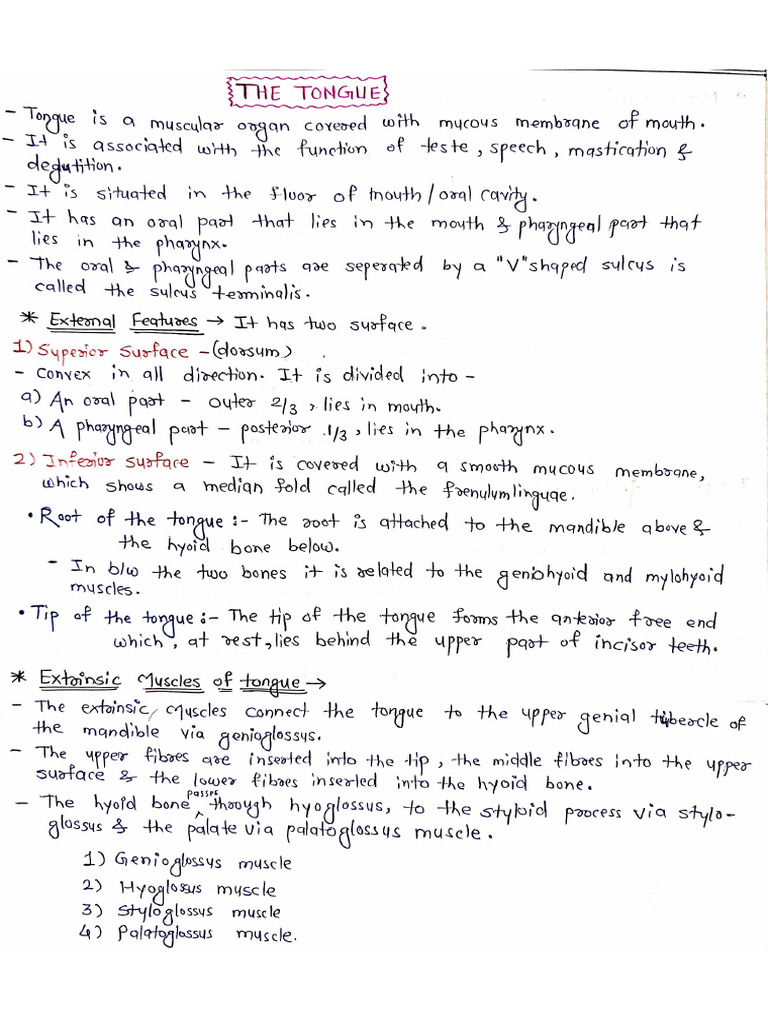 THE TONGUE
- Tongue is a muscular organ covered with mucous membrane of mouth.
- It is associated with the function of teste, speech, mastication &
degutition.
- It is situated in the fluor of mouth/oral cavity.
- It has an oral part that lies in the mouth & pharyngeal part that
lies in the pharynx.
- The oral & pharyngeal parts are seperated by a "V" shaped sulcus is
called the sulcus terminalis.
* External Features → It has two surface.
1) Superior Surface - (dorsum)
- Convex in all direction. It is divided into -
a) An oral part - outer 2/3, lies in mouth.
b) A pharyngeal part - posterior 1/3, lies in the pharynx.
2) Inferior surface - It is covered with a smooth mucous membrane,
which shows a median fold called the frenulumlinguae.
• Root of the tongue :- The root is attached to the mandible above &
the hyoid bone below.
- In b/w the two bones it is related to the geniohyoid and mylohyoid
muscles.
• Tip of the tongue :- The tip of the tongue forms the anterior free end
which, at rest, lies behind the upper part of incisor teeth.
* Extrinsic Muscles of tongue →
- The extrinsic, Muscles connect the tongue to the upper genial tubercle of
the mandible via genioglossus.
- The upper fibres are inserted into the tip, the middle fibres into the upper
surface & the lower fibres inserted into the hyoid bone.
- The hyoid bone passes through hyoglossus, to the styloid process via stylo-
glossus & the palate via palatoglossus muscle.
1) Genioglossys muscle
2) Hyoglosus muscle
3) Styloglossus muscle
4) Palatoglossus muscle.